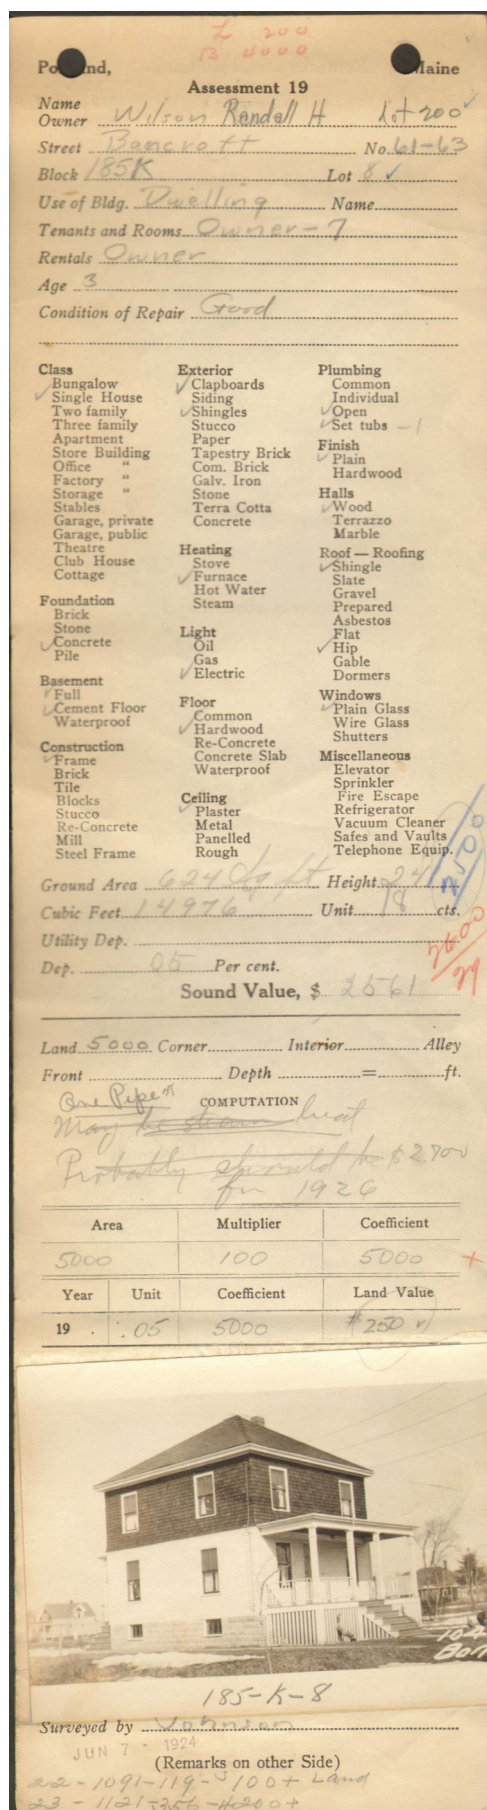 L 200
B 4000
Portland, Maine
Assessment 19
Name
Owner Wilson Randall H Lot 200 ✓
Street Bancroft No. 61-63
Block 185K Lot 8 ✓
Use of Bldg. Dwelling Name
Tenants and Rooms Owner-7
Rentals Owner
Age 3
Condition of Repair Good
Class
Bungalow
✓ Single House
Two family
Three family
Apartment
Store Building
Office "
Factory "
Storage "
Stables
Garage, private
Garage, public
Theatre
Club House
Cottage
Foundation
Brick
Stone
✓ Concrete
Pile
Basement
✓ Full
✓ Cement Floor
Waterproof
Construction
✓ Frame
Brick
Tile
Blocks
Stucco
Re-Concrete
Mill
Steel Frame
Exterior
✓ Clapboards
Siding
✓ Shingles
Stucco
Paper
Tapestry Brick
Com. Brick
Galv. Iron
Stone
Terra Cotta
Concrete
Heating
Stove
✓ Furnace
Hot Water
Steam
Light
Oil
✓ Gas
✓ Electric
Floor
Common
✓ Hardwood
Re-Concrete
Concrete Slab
Waterproof
Ceiling
✓ Plaster
Metal
Panelled
Rough
Plumbing
Common
Individual
✓ Open
✓ Set tubs - 1
Finish
✓ Plain
Hardwood
Halls
✓ Wood
Terrazzo
Marble
Roof — Roofing
✓ Shingle
Slate
Gravel
Prepared
Asbestos
Flat
✓ Hip
Gable
Dormers
Windows
✓ Plain Glass
Wire Glass
Shutters
Miscellaneous
Elevator
Sprinkler
Fire Escape
Refrigerator
Vacuum Cleaner
Safes and Vaults
Telephone Equip.
2500
Ground Area 624 Sq ft Height 24
Cubic Feet 14976 Unit 18 cts.
Utility Dep.
2600
29
Dep. 05 Per cent.
Sound Value, $ 2561
Land 5000 Corner Interior Alley
Front Depth = ft.
One Pipe
COMPUTATION
May be steam heat
Probably should be $2700
for 1926
Area Multiplier Coefficient
5000 100 5000 +
Year Unit Coefficient Land Value
19 .05 5000 $250 ✓
104
185-K-8
Surveyed by Johnson
JUN 7 - 1924
(Remarks on other Side)
22-1091-119-$100+ Land
23-1121-356-4200+